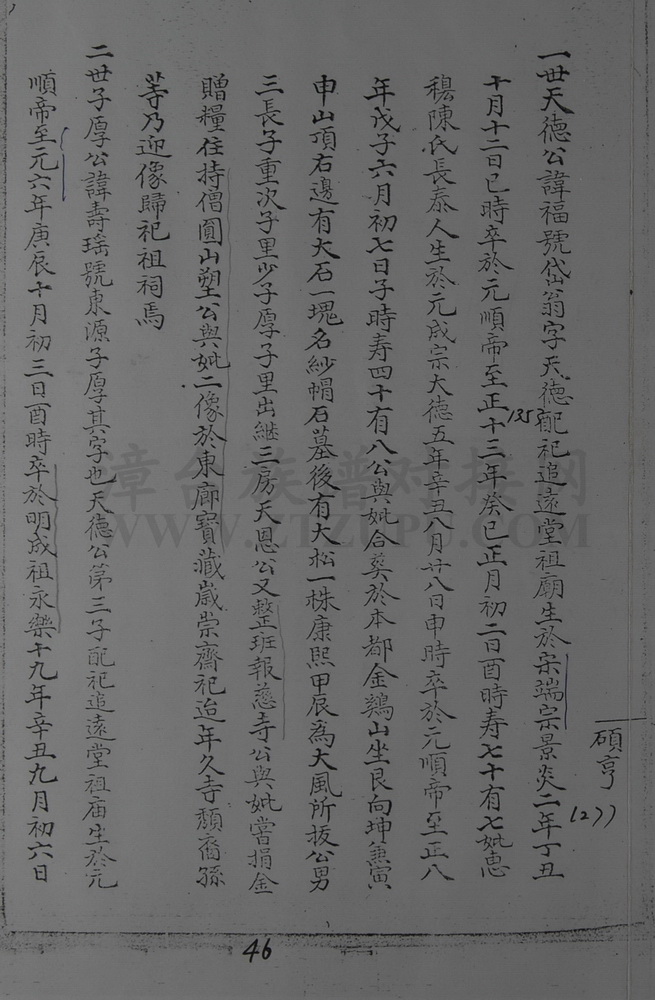 碩亨
1277
一世天德公諱福號岱翁字天德配祀追遠堂祖廟生於宋端宗景炎二年丁丑
十月十二日巳時卒於元順帝至正十三年癸巳正月初二日酉時寿七十有七妣惠
1353
穆陳氏長泰人生於元成宗大德五年辛丑八月廿八日申時卒於元順帝至正八
年戊子六月初七日子時寿四十有八公與妣合葬於本都金鷄山坐艮向坤兼寅
申山頂右邊有大石一塊名紗帽石墓後有大松一株康熙甲辰為大風所拔公男
三長子重次子里少子厚子里出継三房天恩公又整班報慈寺公與妣嘗捐金
贈糧住持僧圓山塑公與妣二像於東廊寶藏歲崇齋祀迨年久寺頹裔孫
等乃迎像歸祀祖祠焉
二世子厚公諱壽瑤號東源子厚其字也天德公第三子配祀追遠堂祖庙生於元
順帝至元六年庚辰十月初三日酉時卒於明成祖永樂十九年辛丑九月初六日
46
漳台族谱对接网
WWW.ZTZUPU.COM